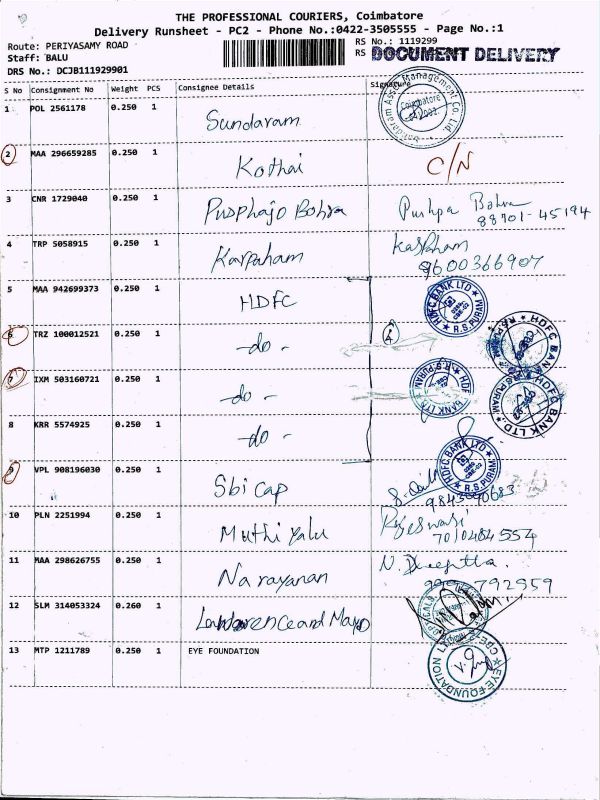 THE PROFESSIONAL COURIERS, Coimbatore
Delivery Runsheet - PC2 - Phone No.:0422-3505555 - Page No.:1
Route: PERIYASAMY ROAD RS No.: 1119299
Staff: BALU RS DOCUMENT DELIVERY
DRS No.: DCJB111929901
S No Consignment No Weight PCS Consignee Details Signature
1 POL 2561178 0.250 1 Sundaram Coimbatore
2 MAA 296659285 0.250 1 Kothai C/N
3 CNR 1729040 0.250 1 Pusphajo Bohra Pushpa Bohra
88701-45194
4 TRP 5058915 0.250 1 Karpaham Karpaham
9600366907
5 MAA 942699373 0.250 1 HDFC HDFC BANK LTD R.S.PURAM
6 TRZ 100012521 0.250 1 -do- 4 HDFC BANK LTD R.S.PURAM
7 IXM 503160721 0.250 1 -do- HDFC BANK LTD R.S.PURAM HDFC BANK LTD R.S.PURAM
8 KRR 5574925 0.250 1 -do-
9 VPL 908196030 0.250 1 Sbi cap HDFC BANK LTD R.S.PURAM
10 PLN 2251994 0.250 1 Muthiyalu
7010484554
11 MAA 298626755 0.250 1 Narayanan N. Deeptha
792959
12 SLM 314053324 0.260 1
13 MTP 1211789 0.250 1 EYE FOUNDATION EYE FOUNDATION